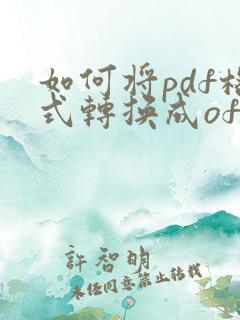 如何将pdf格
式轉换成of
許智明
未经同意禁止转载